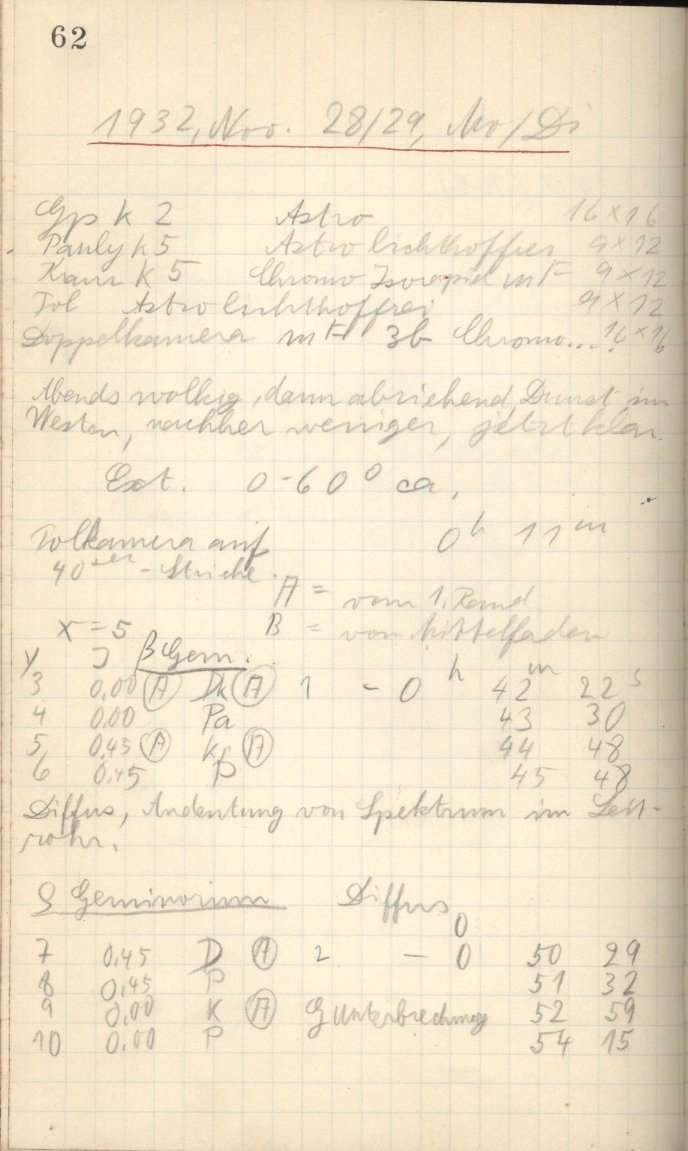 62
1932, Nov. 28/29, Mo/Di
Gp K 2 Astro 16×16
Pauly K 5 Astro lichthoffrei 9×12
Kam K 5 Chromo Isorapid mF 9×12
Tol Astro lichthoffrei 9×12
Doppelkamera mF 3b Chromo... 16×16
Abends wolkig, dann abziehend, Dunst im
Westen, nachher weniger, jetzt klar.
Ext. 0-60° ca.
Tolkamera auf 0h 11m
40 -Striche.
A = vom 1. Rand
x = 5 B = vom Mittelfaden
y J β Gem.
3 0,00 A Dk A 1 - 0h 42m 22s
4 0,00 Pa 43 30
5 0,45 A Kr A 44 48
6 0,45 P 45 48
Diffus, Andeutung von Spektrum im Leit-
rohr.
Geminorum Diffus
7 0,45 D A 2 - 0 50 29
8 0,45 P 51 32
9 0,00 K A Unterbrechung 52 59
10 0,00 P 54 15